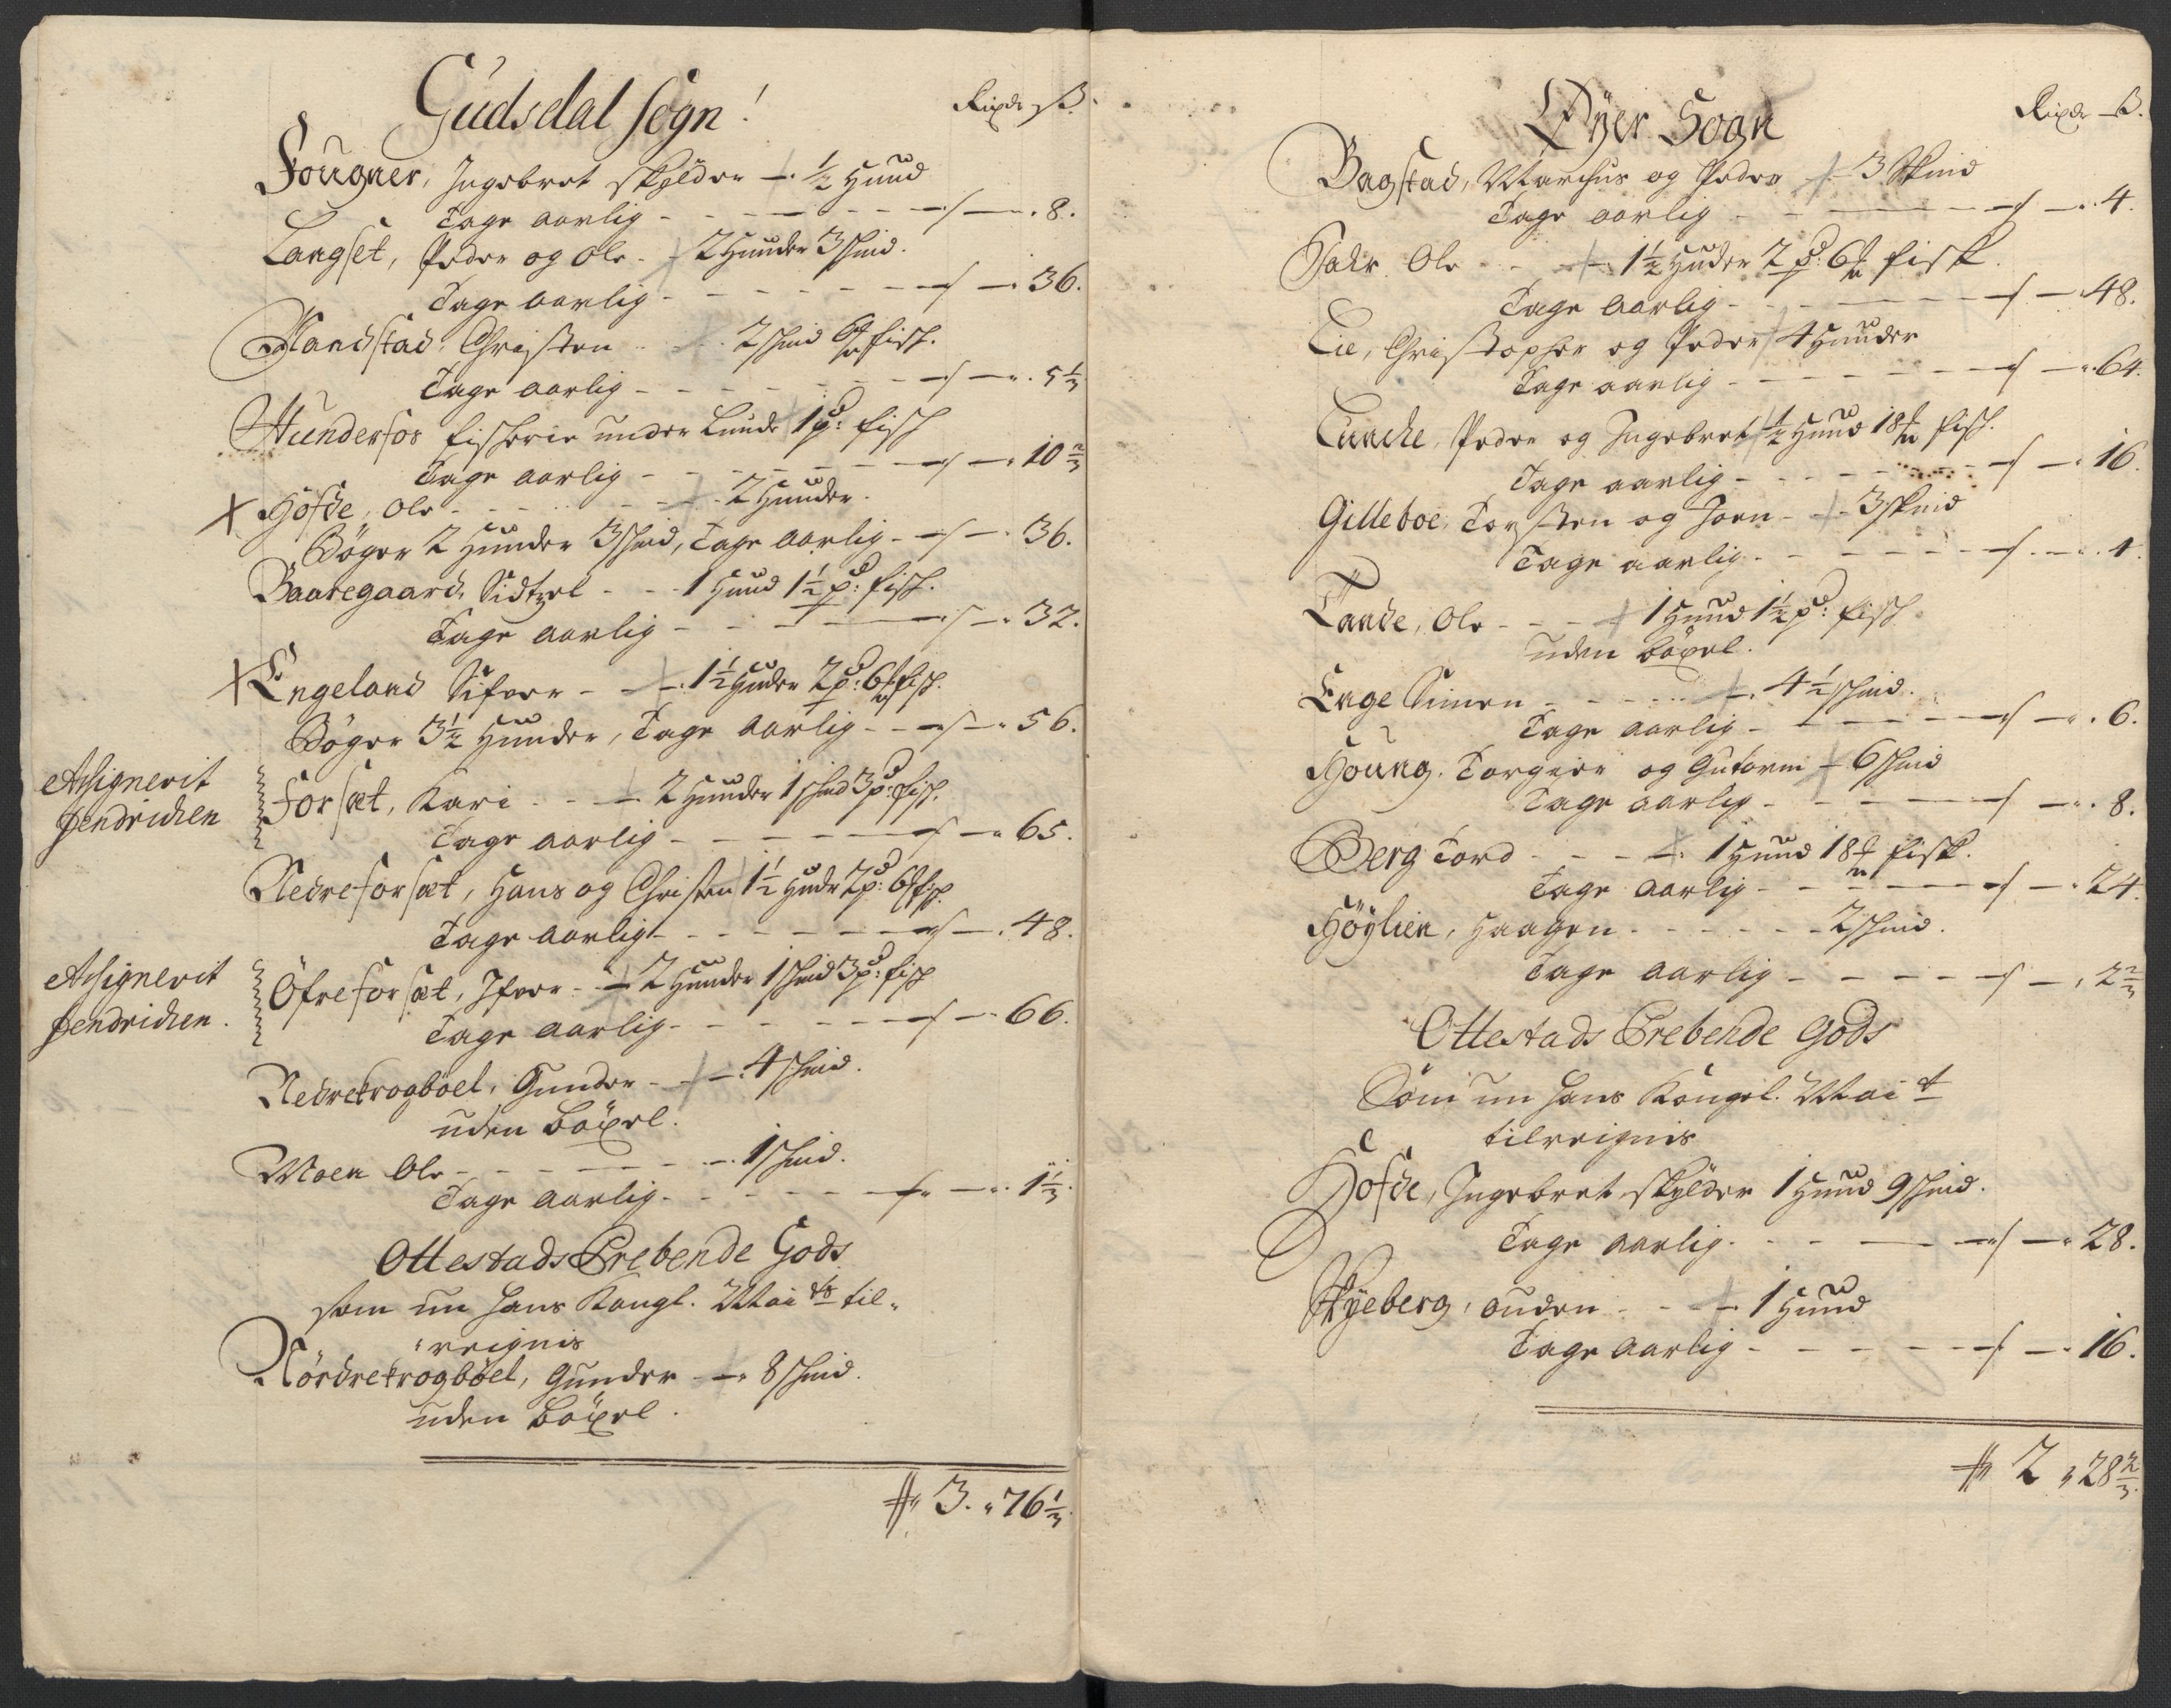 Gudsdal sogn!
Rixdr ß.
Fougner, Ingebret skylder - ½ Huud
Tage aarlig - - - - 8.
Langset, Peder og Ole - 2 Huuder 3 skind.
Tage aarlig - - - - 36.
Randstad, Christen - - 2 skind 6 fisk.
Tage aarlig - - - - 5⅓
Hunderfos fiskerie under Lunde 1 pd: fisk
Tage aarlig - - - - 10⅔
Høfde, Ole - - - - 2 Huuder.
Böger 2 Huuder 3 skind, Tage aarlig - - 36.
Baategaard, Sidtzel - - 1 Huud 1½ pd: fisk.
Tage aarlig - - - - 32.
Engeland Sifver - - 1½ Huder 2 pd: 6 fisk.
Böger 3½ Huuder, Tage aarlig - - 56.
Assignerit
fendrichen
Forsæt, Kari - - 2 Huuder 1 skind 3 pd: fisk.
Tage aarlig - - - - 65.
Nedreforsæt, Hans og Christen 1½ Hude 2 pd: 6 fisk.
Tage aarlig - - - - 48.
Assignerit
fendrichen.
Öfreforsæt, Ifver - - 2 Huuder 1 skind 3 pd: fisk
Tage aarlig - - - - 66.
Nedrekrogböel, Gunder - - 4 skind.
uden böxel.
Moen Ole - - - - 1 skind.
Tage aarlig - - - - 1⅓.
Ottestads Prebende Gods
som nu hans Kongl. Mai ts til-
reignis
Nördrekrogböel, Gunder - 8 skind.
uden böxel.
3. 76⅓
Öyer Sogn
Rixdr ß.
Bagstad, Marchus og Peder - 3 skind
Tage aarlig - - - - 4.
Ole - - 1½ Huder 2 pd: 6 fisk.
Tage aarlig - - - - 48.
Lie, Christopher og Peder 4 Huuder
Tage aarlig - - - - 64.
Lunche, Peder og Ingebret ½ Huud 18 fisk.
Tage aarlig - - - - 16.
Gilleboe, Torsten og Joen - 3 skind
Tage aarlig - - - - 4.
Tande, Ole - - - 1 Huud 1½ pd: fisk
uden böxel.
Enge Simen - - - - 4½ skind.
Tage aarlig - - - - 6.
Houng, Torgier og Gutorm - 6 skind
Tage aarlig - - - - 8.
Berg Tord - - - 1 Huud 18 fisk.
Tage aarlig - - - - 24.
Höylien, Haagen - - - - 2 skind.
Tage aarlig - - - - 2⅔
Ottestads Prebende Gods
Som nu hans Kongl. Mai t
tilreignis
Hofde, Ingebret skylder 1 Huud 9 skind.
Tage aarlig - - - - 28.
Skyeberg, ouden - - - 1 Huud
Tage aarlig - - - - 16.
2 28⅔